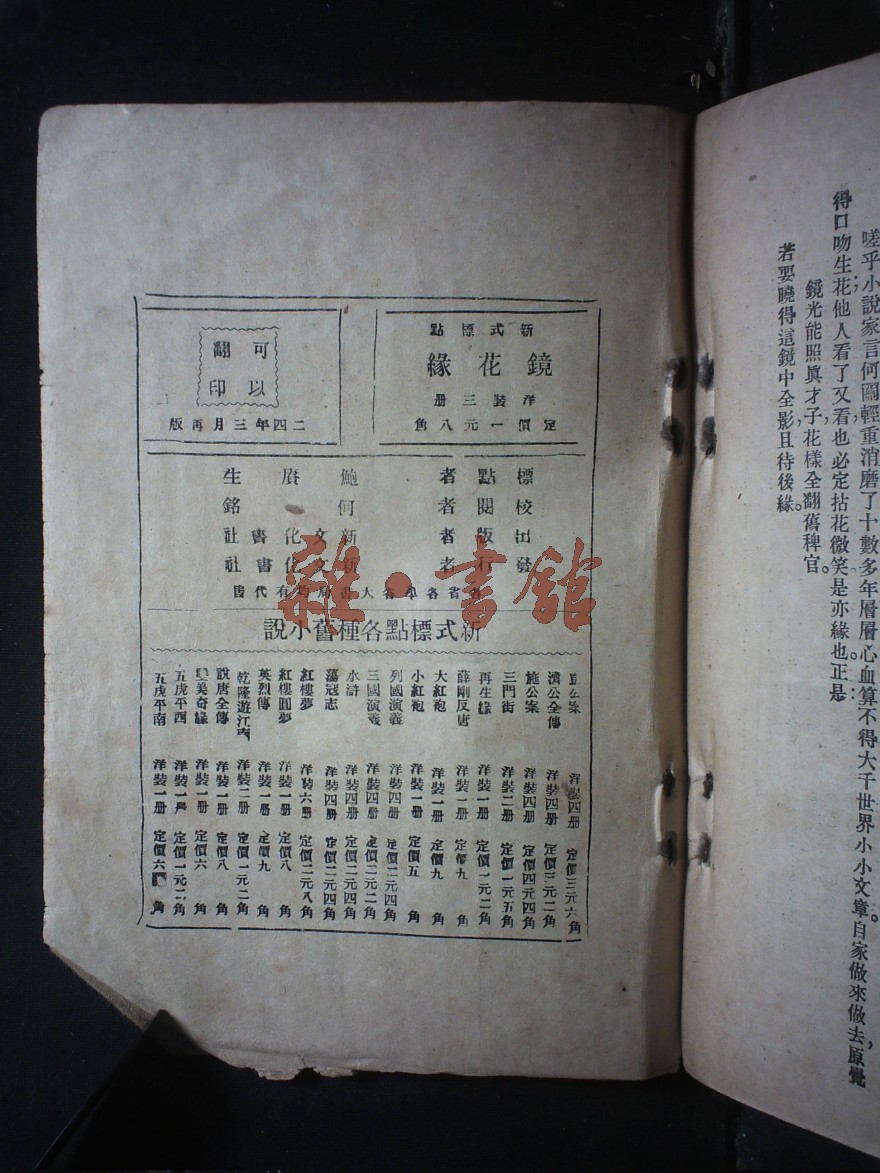 嗟乎小說家言何關輕重消磨了十數多年層層心血算不得大千世界小小文章。自家做來做去,原覺
得口吻生花他人看了又看也必定拈花微笑是亦緣也。正是:
鏡光能照眞才子,花樣全翻舊稗官。
若要曉得這鏡中全影,且待後緣。
新式標點
鏡花緣
洋裝三册
定價一元八角
可以翻印
二四年三月再版
標點者 鮑賡生
校閱者 何銘
出版者 新文化書社
發行者 新文化書社
各省各埠各大書局均有代售
新式標點各種舊小說
公案 洋裝四册 定價三元六角
濟公全傳 洋裝四册 定價三元二角
施公案 洋裝四册 定價四元四角
三門街 洋裝二册 定價一元五角
再生緣 洋裝一册 定價一元二角
薛剛反唐 洋裝一册 定價九角
大紅袍 洋裝一册 定價九角
小紅袍 洋裝一册 定價五角
列國演義 洋裝四册 定價二元四角
三國演義 洋裝四册 定價二元二角
水滸 洋裝四册 定價二元四角
蕩寇志 洋裝四册 定價二元四角
紅樓夢 洋裝六册 定價二元八角
紅樓圓夢 洋裝一册 定價八角
英烈傳 洋裝一册 定價九角
乾隆遊江南 洋裝二册 定價一元二角
說唐全傳 洋裝一册 定價八角
雙美奇緣 洋裝一册 定價六角
五虎平西 洋裝一册 定價一元二角
五虎平南 洋裝一册 定價六角
雜·書館